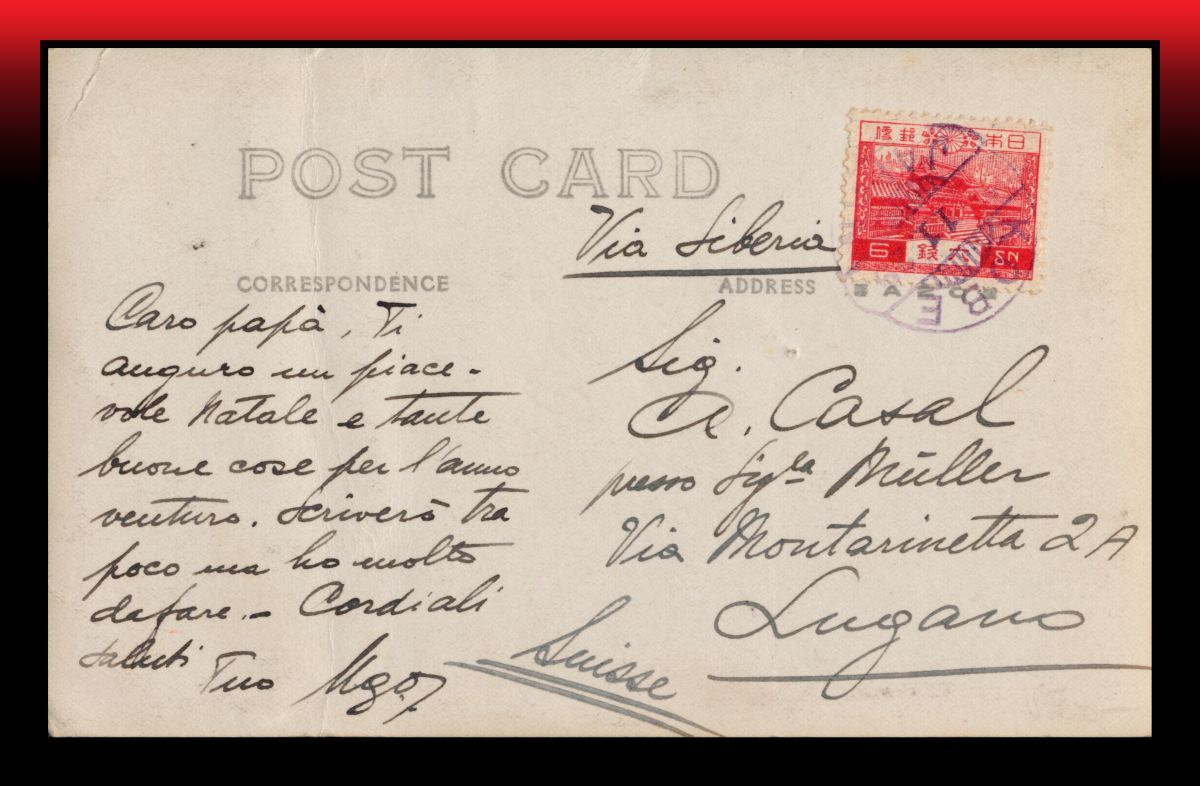 POST CARD
Via Siberia
CORRESPONDENCE
ADDRESS
日本郵便
6 銭 SN
KOBE
Caro papà, Ti
auguro un piace-
vole Natale e tante
buone cose per l'anno
venturo. Scriverò tra
poco ma ho molto
da fare.- Cordiali
saluti
Tuo Ugo
Sig.
A. Casal
presso Sigla Müller
Via Montarinetta 2A
Lugano
Suisse